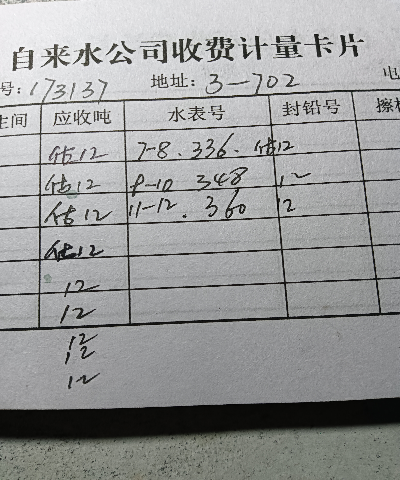 自来水公司收费计量卡片
号: 173137 地址: 3-702 电
生间 应收吨 水表号 封铅号 擦
估12 7-8. 336. 估12
估12 9-10 348 12
估12 11-12. 360 12
估12
12
12
12
12
12